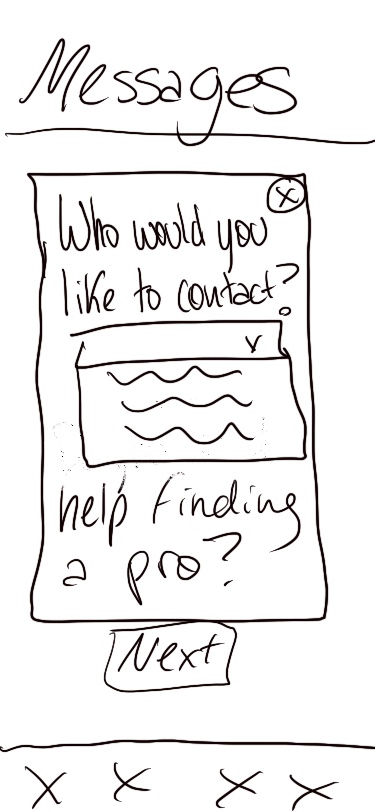 Messages
X
Who would you
like to contact?
v
help finding
a pro?
Next
X X X X